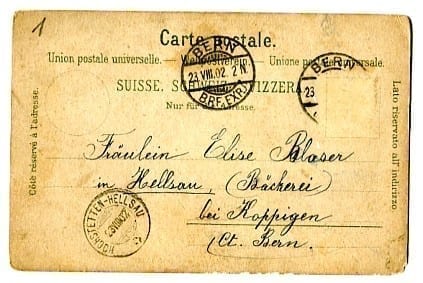 1
Carte postale.
Union postale universelle. — Weltpostverein. — Unione postale universale.
SUISSE. SCHWEIZ. SVIZZERA.
Nur für die Adresse.
BERN
23.VIII.02. 2 N.
BRF. EXP.
BERN
23
Côté réservé à l'adresse.
Lato riservato all'indirizzo
Fräulein Elise Blaser
in Hellsau, (Bäckerei
bei Koppigen
(Ct. Bern.
HÖCHSTETTEN-HELLSAU
23.VIII.02